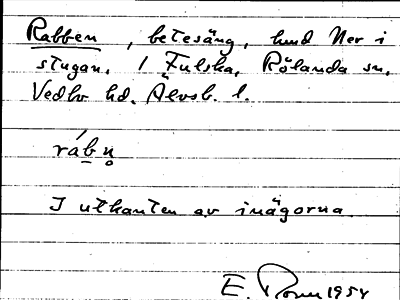 Rabben, betesäng, hund Ner i
stugan. 1 Fulska, Rölanda sn,
Vedbo hd. Älvsb. l.
rábn̥
I utkanten av inägorna
E. 1954